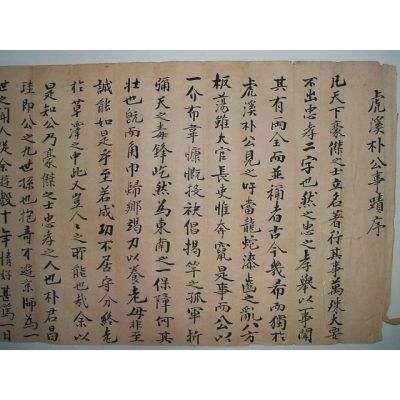 虎溪朴公事蹟序
凡天下豪傑之士立名著行其事萬殊大要
不出忠孝二字也然之忠之孝舉以一事聞
其有兩全而並稱者古今幾希而獨於
虎溪朴公見之吁當龍蛇漆齒之亂八方
板蕩雖大官長吏惟奔竄是事而公以
一介布韋慷慨投袂倡揭竿之孤軍折
彌天之毒鋒屹然為東南之一保障何其
壯也旣而角巾歸鄕賣刀以養老母非至
誠能如是乎至若成功不居守分終老
於草澤之中此又豈人人之所能也哉余以
是知公乃豪傑之士忠孝之人也朴君昌
珪即公之九世孫也抱奇不遊京師為一
世之聞人從余遊殆十年情好甚篤一日